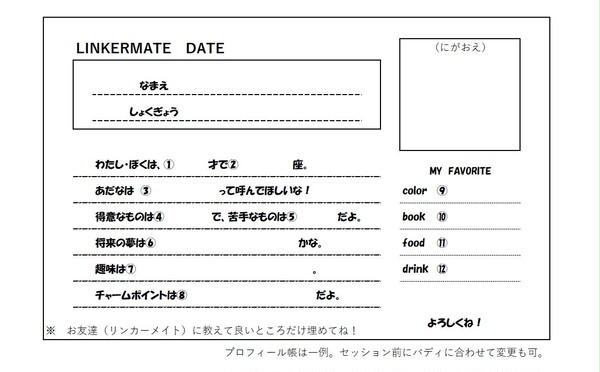 LINKERMATE DATE
なまえ
しょくぎょう
(にがおえ)
わたし・ぼくは、① 才で② 座。
あだなは ③ って呼んでほしいな！
得意なものは④ で、苦手なものは⑤ だよ。
将来の夢は⑥ かな。
趣味は⑦ 。
チャームポイントは⑧ だよ。
MY FAVORITE
color ⑨
book ⑩
food ⑪
drink ⑫
よろしくね！
※ お友達（リンカーメイト）に教えて良いところだけ埋めてね！
プロフィール帳は一例。セッション前にバディに合わせて変更も可。